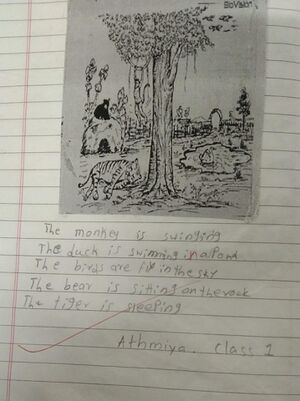 BioVision
The monkey is swinging
The duck is swimming in a Pond
The birds are fly in the sky
The bear is sitting on the rock
The tiger is sleeping
Athmiya. Class 1